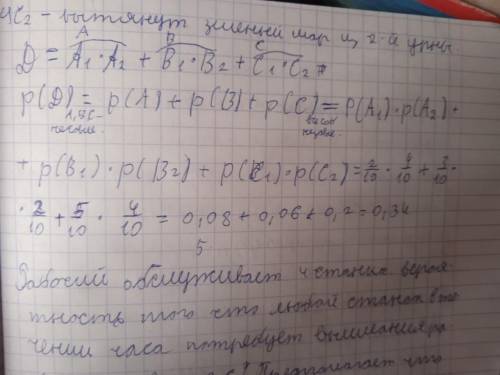 ЧC₂ - вытянут зеленый шар из 2-й урны
A B C
D = A₁·A₂ + B₁·B₂ + C₁·C₂ =
p(D) = p(A) + p(B) + p(C) = P(A₁)·p(A₂) ·
A,B,C-
+ p(B₁)·p(B₂) + p(C₁)·p(C₂) = 2/10 · 4/10 + 3/10 ·
· 2/10 + 5/10 · 4/10 = 0,08 + 0,06 + 0,2 = 0,34
5
Рабочий обслуживает 4 станка вероя-
тность того что любой станок в те
чении часа потребует
Предполагает что